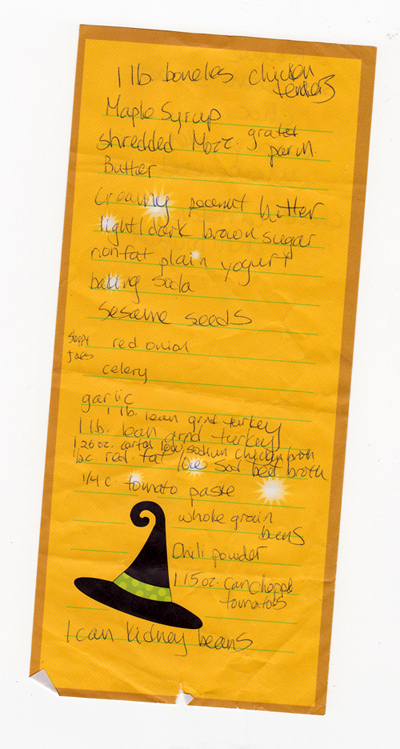 1 lb boneles chicken
tenders
Maple Syrup
shredded Mozz. grated
parm.
Butter
creamy peanut butter
light/dark brown sugar
nonfat plain yogurt
baking soda
sesame seeds
sloppy
joes
red onion
celery
garlic
1 lb. lean grnd turkey
1 lb. lean grnd turkey
1 26 oz. carton low sodium chicken broth
red. fat low sod beef broth
1/4 c tomato paste
whole grain
buns
Chili powder
1 15 oz. can chopped
tomatoes
1 can kidney beans